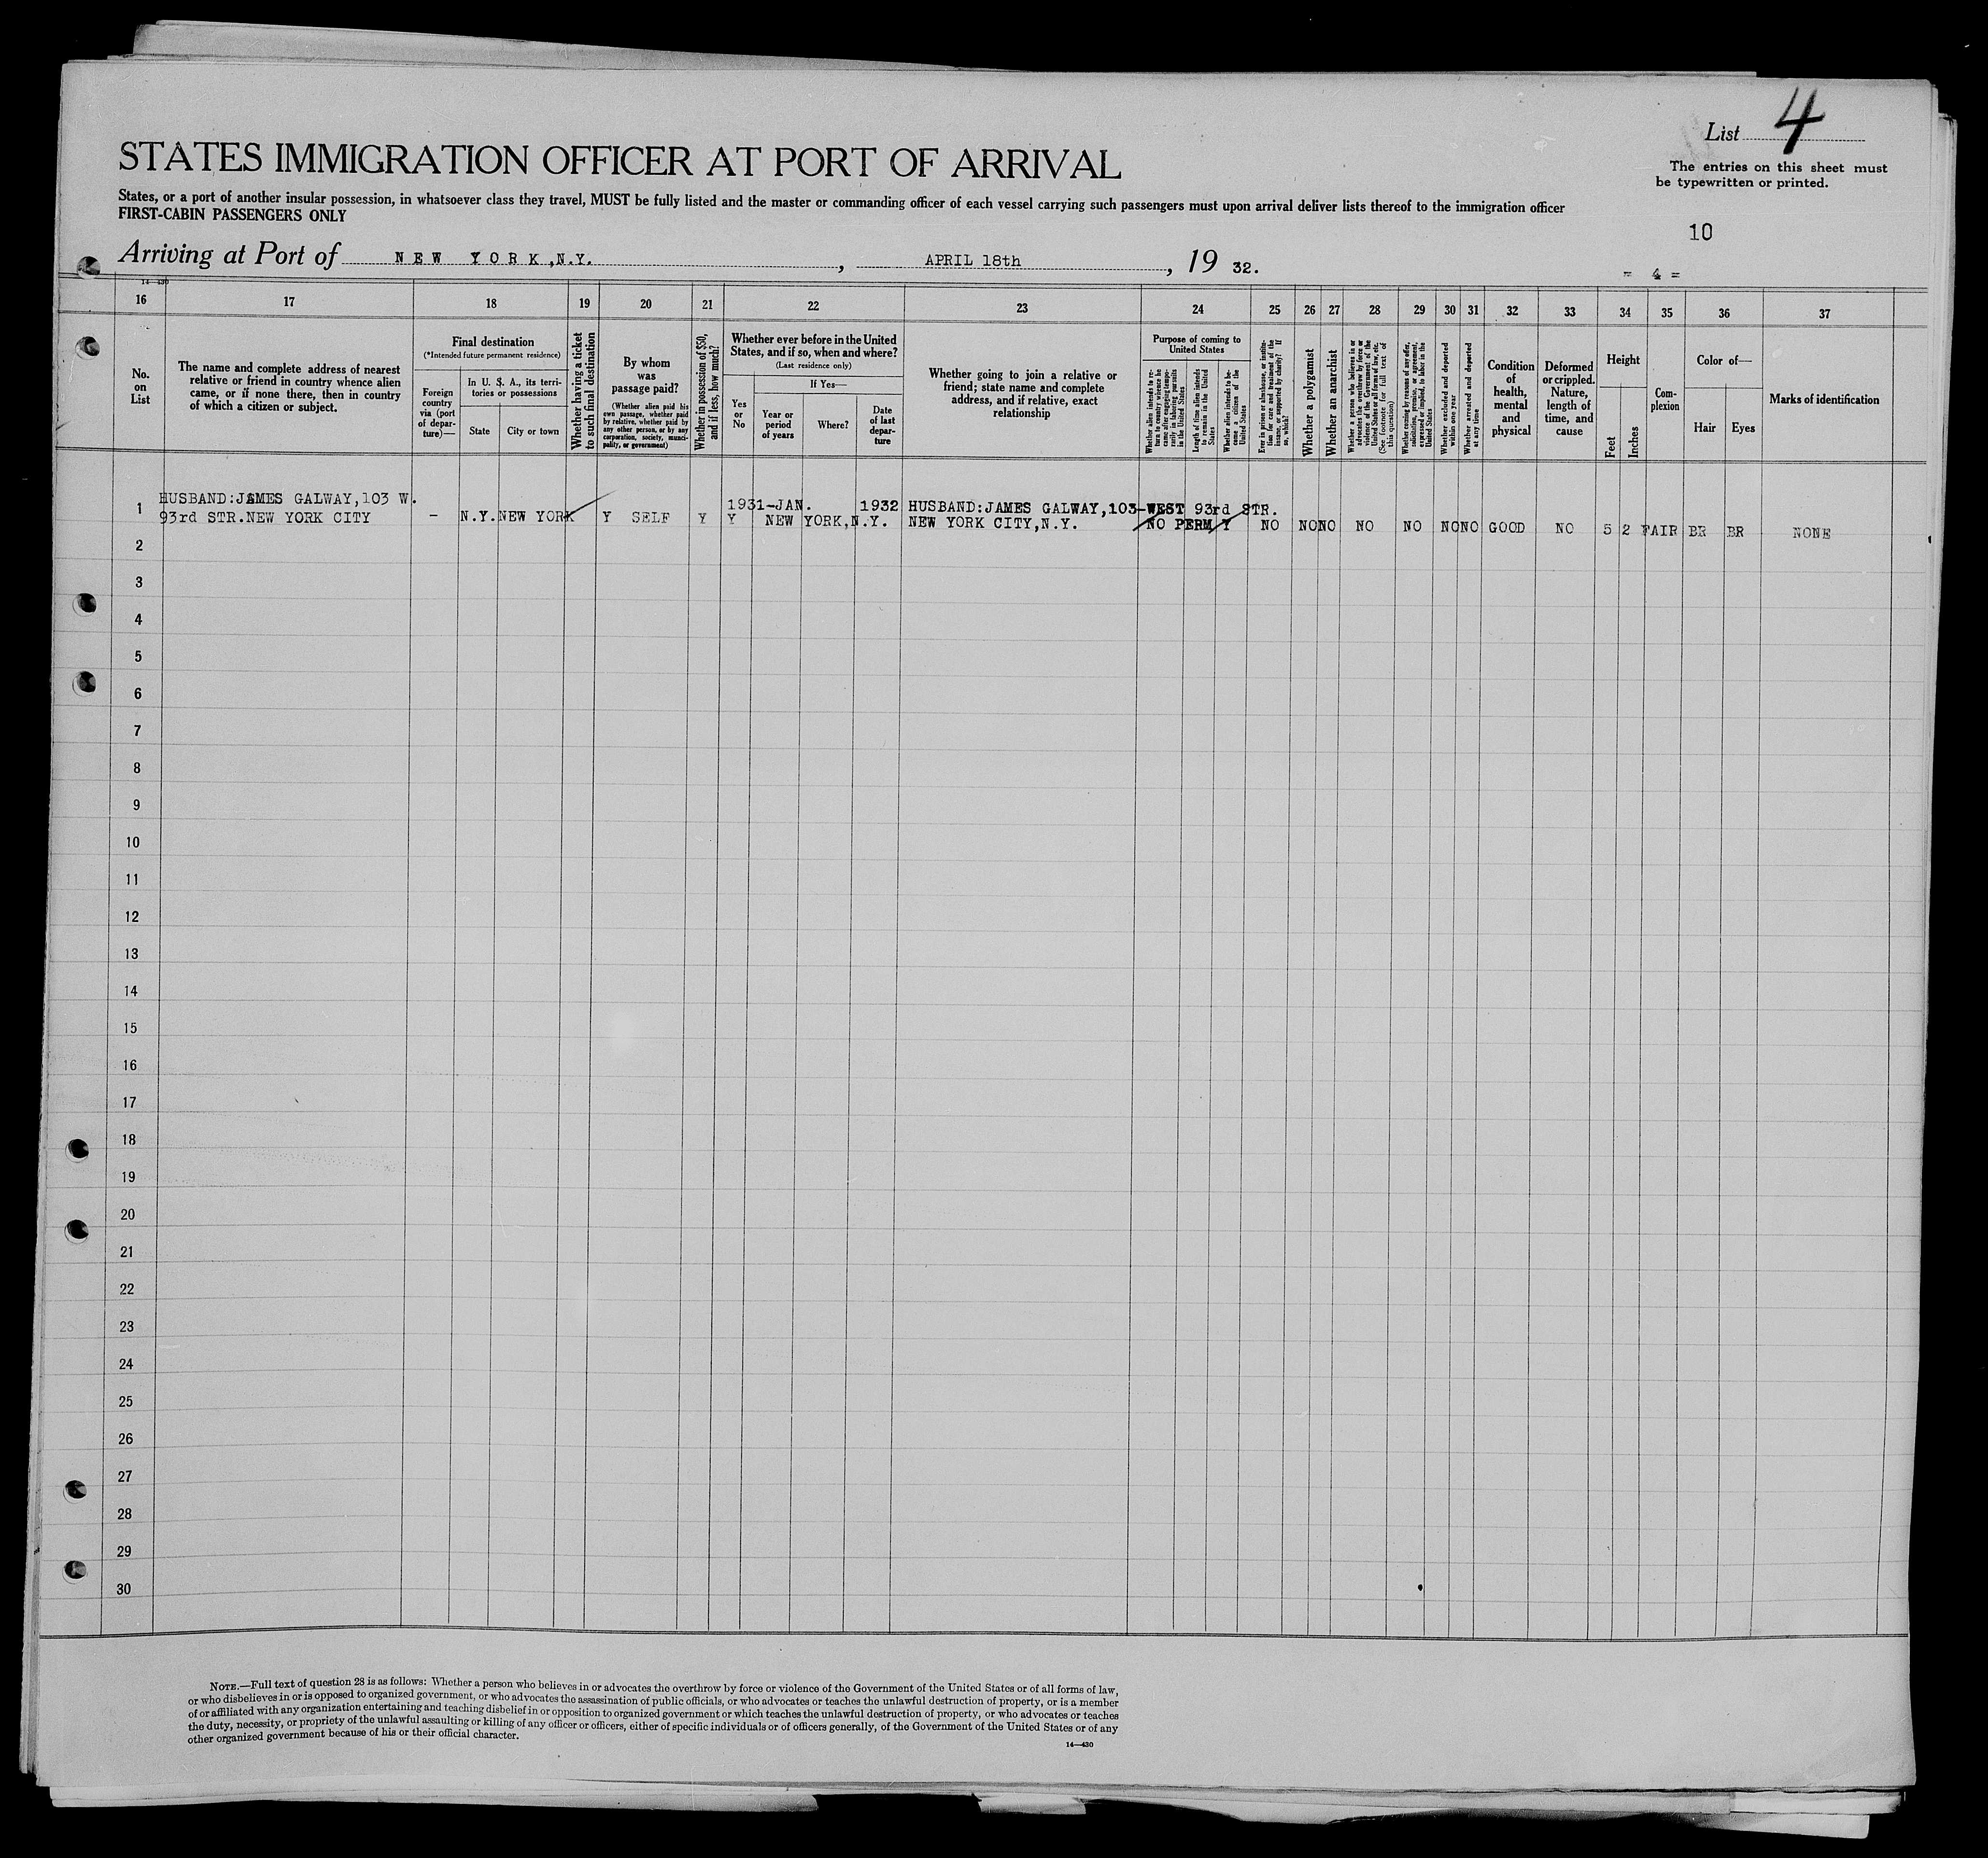 List 4
The entries on this sheet must
be typewritten or printed.
STATES IMMIGRATION OFFICER AT PORT OF ARRIVAL
States, or a port of another insular possession, in whatsoever class they travel, MUST be fully listed and the master or commanding officer of each vessel carrying such passengers must upon arrival deliver lists thereof to the immigration officer
FIRST-CABIN PASSENGERS ONLY
10
Arriving at Port of NEW YORK,N.Y. , APRIL 18th , 19 32.
= 4 =
14-430
16 17 18 19 20 21 22 23 24 25 26 27 28 29 30 31 32 33 34 35 36 37
No.
on
List
The name and complete address of nearest
relative or friend in country whence alien
came, or if none there, then in country
of which a citizen or subject.
Final destination
(*Intended future permanent residence)
Foreign
country
via (port
of depar-
ture)—
In U. S. A., its terri-
tories or possessions
State
City or town
Whether having a ticket
to such final destination
By whom
was
passage paid?
(Whether alien paid his
own passage, whether paid
by relative, whether paid by
any other person, or by any
corporation, society, munici-
pality, or government)
Whether in possession of $50,
and if less, how much?
Whether ever before in the United
States, and if so, when and where?
(Last residence only)
Yes
or
No
If Yes—
Year or
period
of years
Where?
Date
of last
depar-
ture
Whether going to join a relative or
friend; state name and complete
address, and if relative, exact
relationship
Purpose of coming to
United States
Whether alien intends to re-
turn to country whence he
came after engaging tempo-
rarily in laboring pursuits
in the United States
Length of time alien intends
to remain in the United
States
Whether alien intends to be-
come a citizen of the
United States
Ever in prison or almshouse, or institu-
tion for care and treatment of the
insane, or supported by charity? If
so, which?
Whether a polygamist
Whether an anarchist
Whether a person who believes in or
advocates the overthrow by force or
violence of the Government of the
United States or all forms of law, etc.
(See footnote for full text of
this question)
Whether coming by reasons of any offer,
solicitation, promise, or agreement,
expressed or implied, to labor in the
United States
Whether excluded and deported
within one year
Whether arrested and deported
at any time
Condition
of
health,
mental
and
physical
Deformed
or crippled.
Nature,
length of
time, and
cause
Height
Feet
Inches
Com-
plexion
Color of—
Hair
Eyes
Marks of identification
HUSBAND:JAMES GALWAY,103 W. 1931-JAN. 1932 HUSBAND:JAMES GALWAY,103-WEST 93rd STR.
1 93rd STR.NEW YORK CITY - N.Y. NEW YORK Y SELF Y Y NEW YORK,N.Y. NEW YORK CITY,N.Y. NO PERM Y NO NO NO NO NO NO NO GOOD NO 5 2 FAIR BR BR NONE
2
3
4
5
6
7
8
9
10
11
12
13
14
15
16
17
18
19
20
21
22
23
24
25
26
27
28
29
30
NOTE.—Full text of question 28 is as follows: Whether a person who believes in or advocates the overthrow by force or violence of the Government of the United States or of all forms of law,
or who disbelieves in or is opposed to organized government, or who advocates the assassination of public officials, or who advocates or teaches the unlawful destruction of property, or is a member
of or affiliated with any organization entertaining and teaching disbelief in or opposition to organized government or which teaches the unlawful destruction of property, or who advocates or teaches
the duty, necessity, or propriety of the unlawful assaulting or killing of any officer or officers, either of specific individuals or of officers generally, of the Government of the United States or of any
other organized government because of his or their official character.
14—430